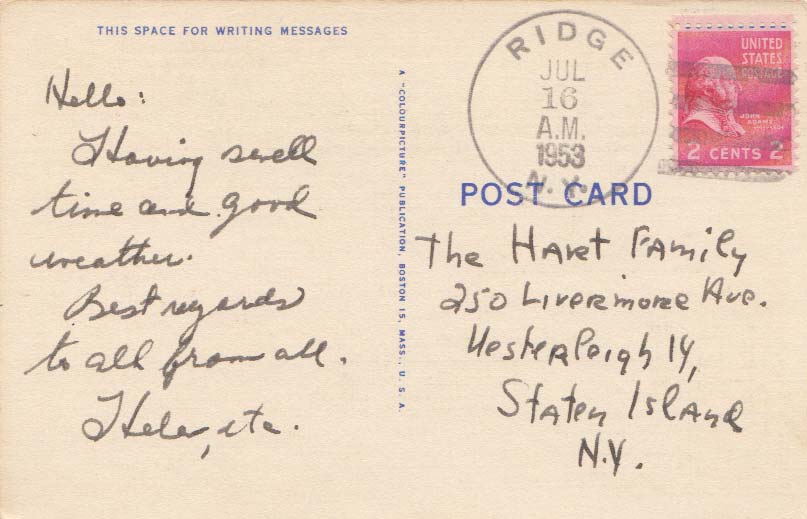 THIS SPACE FOR WRITING MESSAGES
Hello:
Having swell
time and good
weather.
Best regards
to all from all.
Hele, etc.
A "COLOURPICTURE" PUBLICATION, BOSTON 15, MASS., U. S. A.
RIDGE
JUL
16
A.M.
1953
N. Y.
UNITED
STATES
POSTAGE
JOHN
ADAMS
2 CENTS 2
POST CARD
The Hart Family
250 Livermore Ave.
Westerleigh 14,
Staten Island
N.Y.